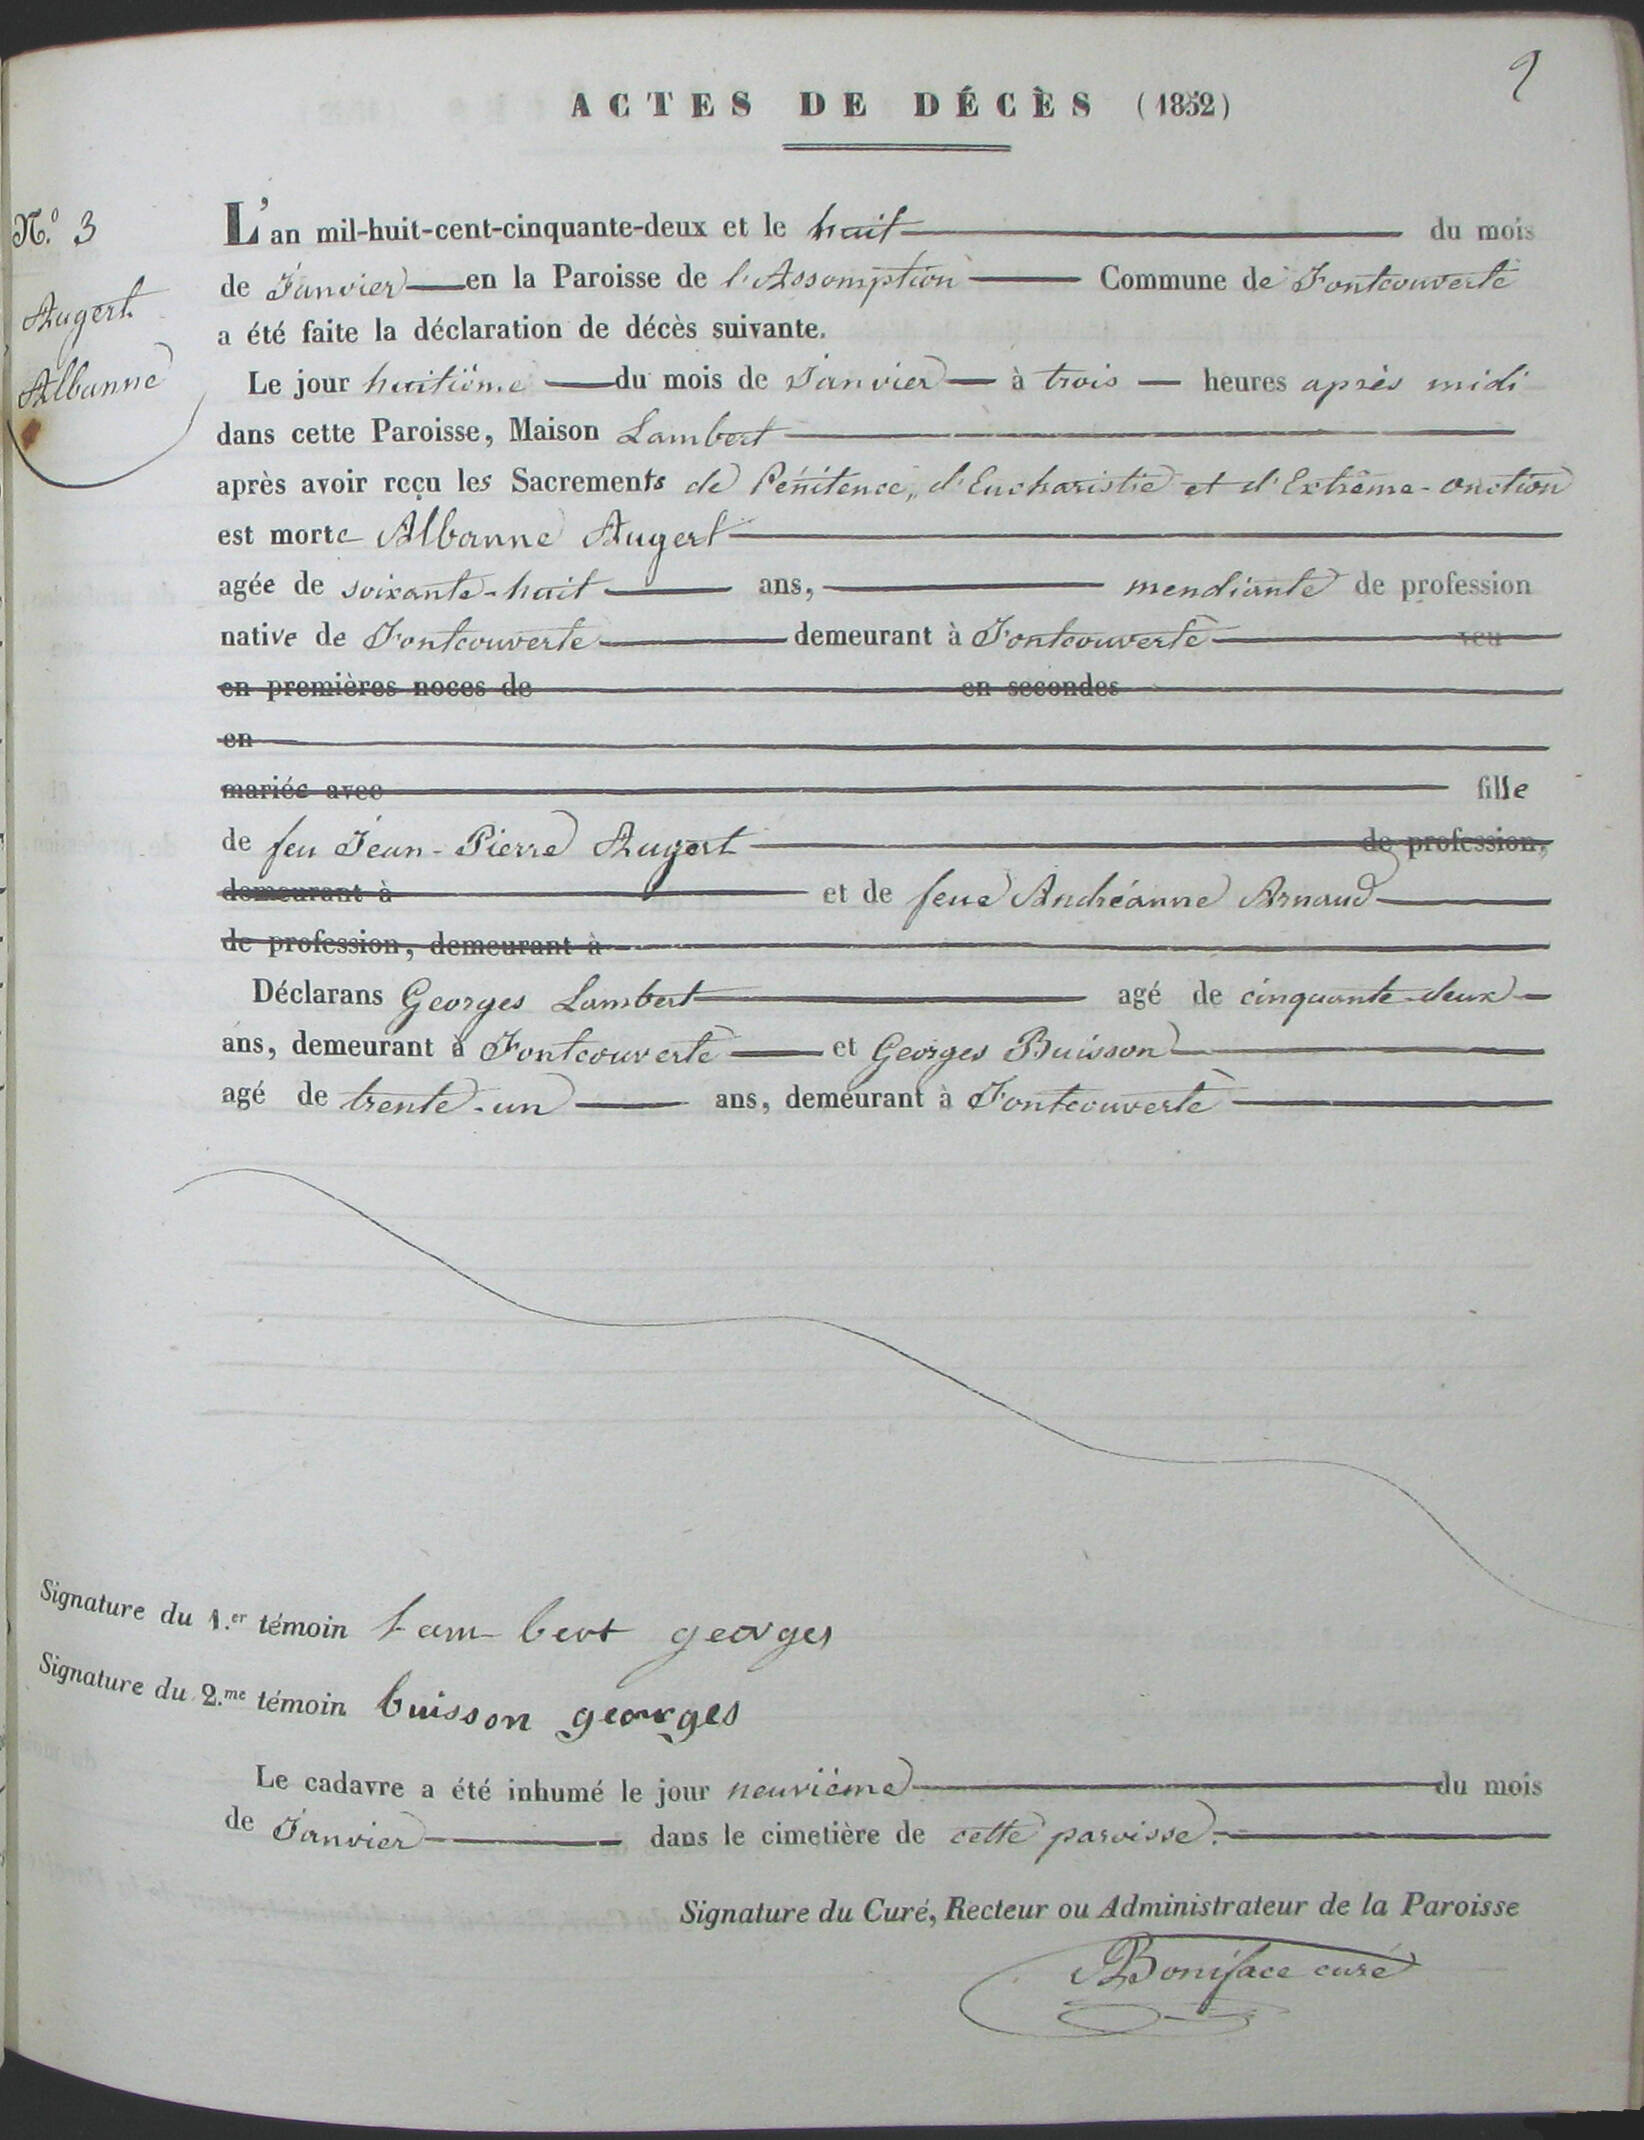 9
ACTES DE DÉCÈS (1852)
N.º 3
Augert
Albanne
L'an mil-huit-cent-cinquante-deux et le huit du mois
de Janvier en la Paroisse de l'Assomption Commune de Fontcouverte
a été faite la déclaration de décès suivante.
Le jour huitième du mois de Janvier à trois heures après midi
dans cette Paroisse, Maison Lambert
après avoir reçu les Sacrements de Pénitence, d'Eucharistie et d'Extrême-onction
est morte Albanne Augert
agée de soixante-huit ans, mendiante de profession
native de Fontcouverte demeurant à Fontcouverte veu
en premières noces de en secondes
en
mariée avec fille
de feu Jean-Pierre Augert de profession,
demeurant à et de feue Andréanne Arnaud
de profession, demeurant à
Déclarans Georges Lambert agé de cinquante-deux
ans, demeurant à Fontcouverte et Georges Buisson
agé de trente-un ans, demeurant à Fontcouverte
Signature du 1.er témoin Lam bert georges
Signature du 2.me témoin buisson georges
Le cadavre a été inhumé le jour neuvième du mois
de Janvier dans le cimetière de cette paroisse.
Signature du Curé, Recteur ou Administrateur de la Paroisse
Boniface curé